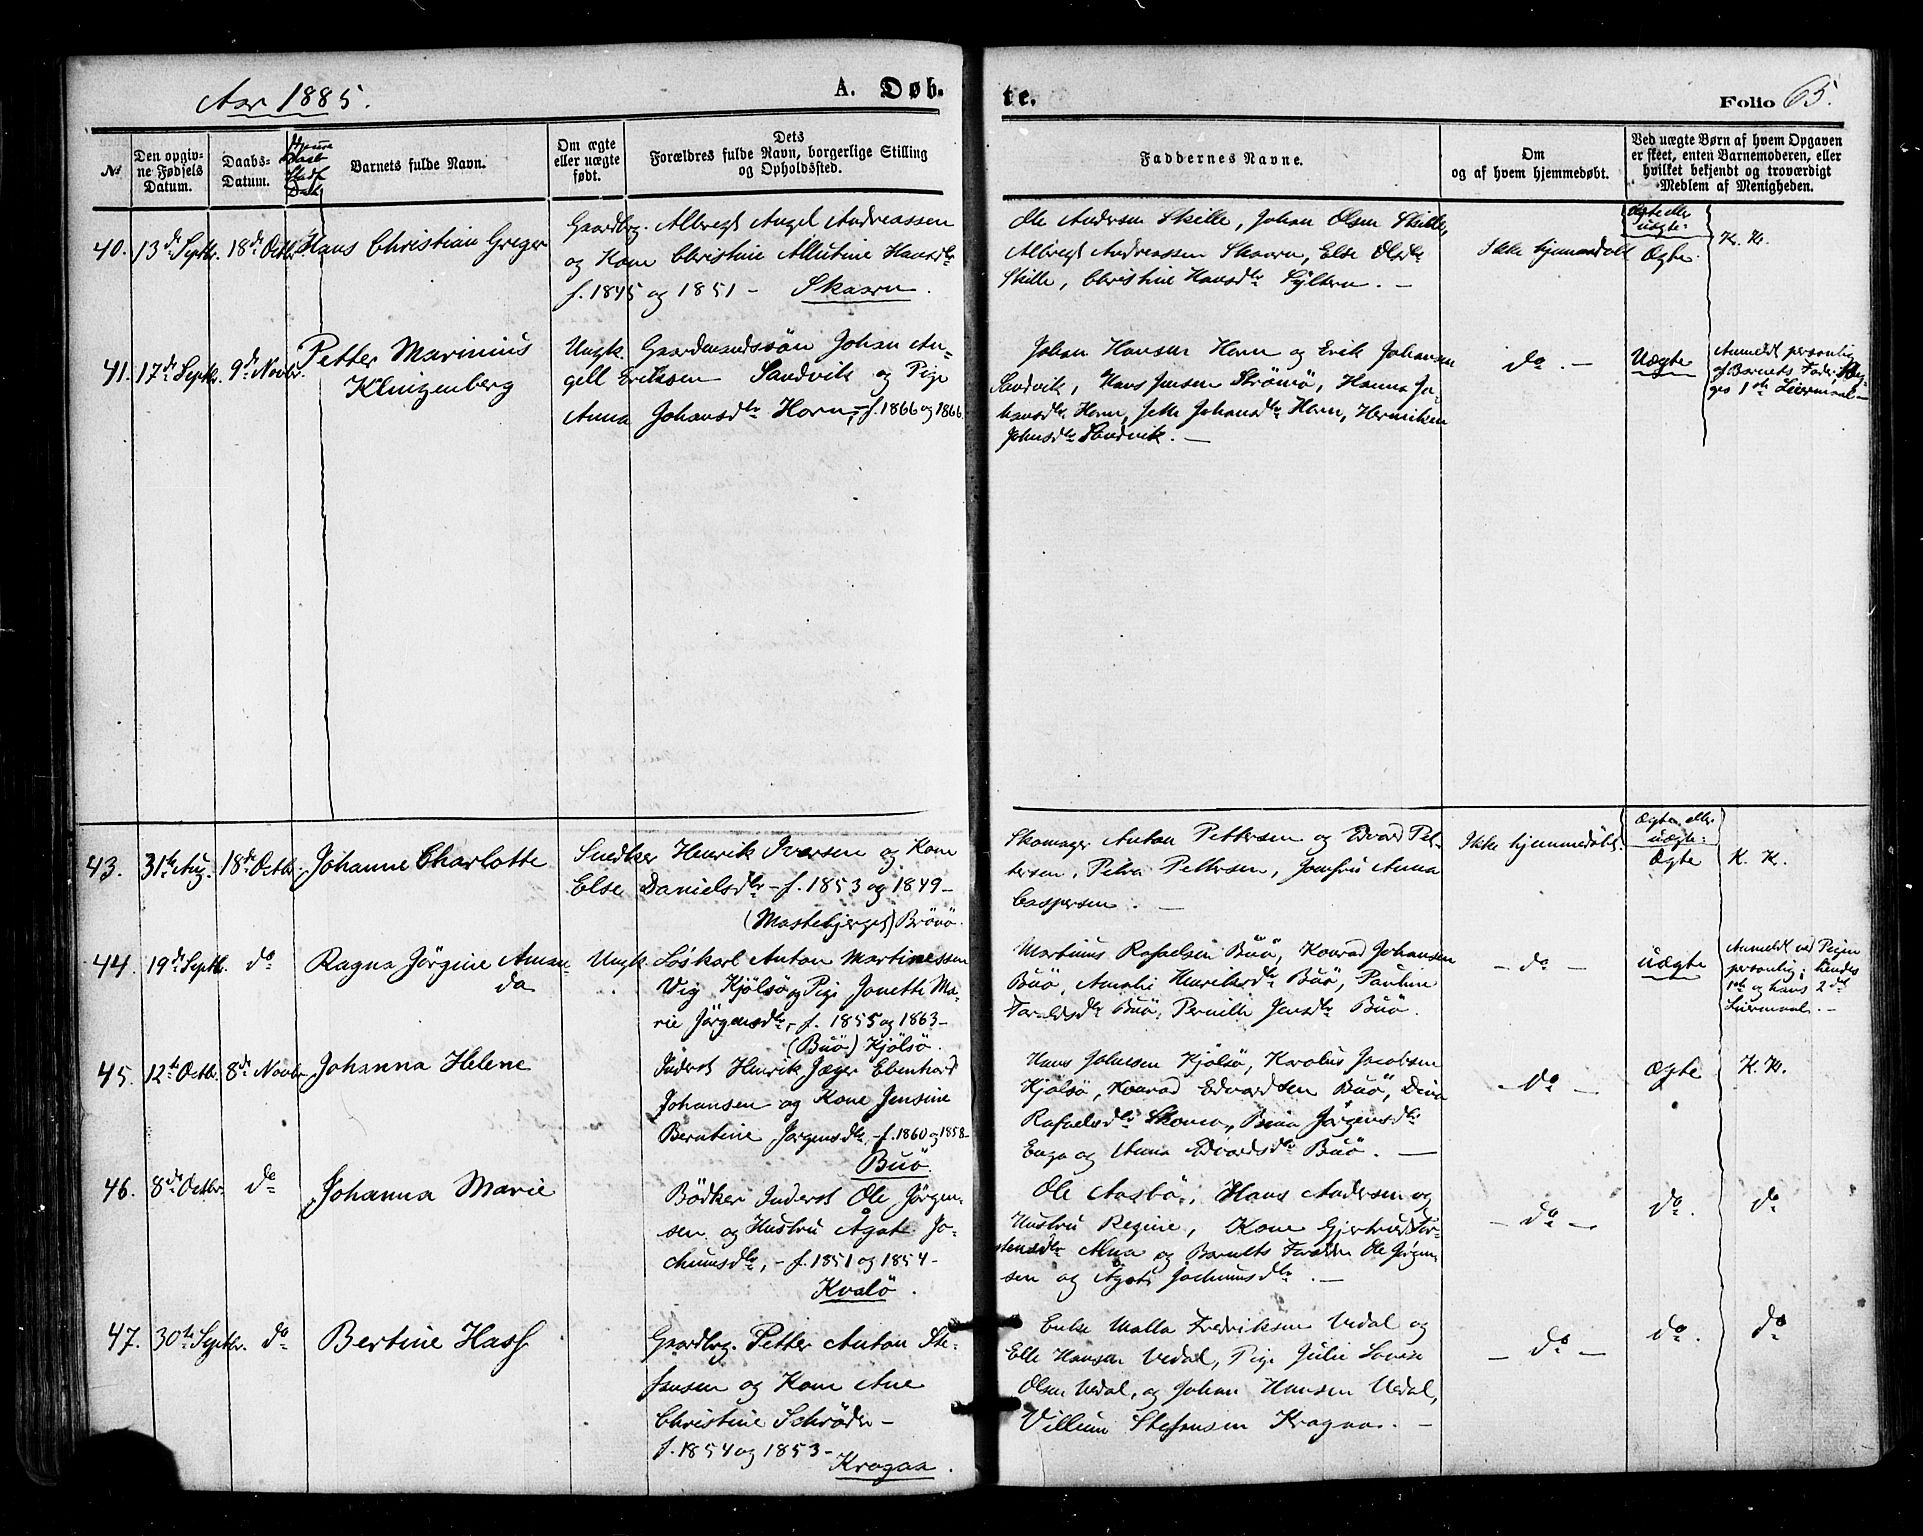 Aar 1885.
A. Døb-
te.
Folio 65.
No
Den opgiv-
ne Fødsels
Datum.
Daabs-
Datum.
Barnets fulde Navn.
Om ægte
eller uægte
født.
Dets
Forældres fulde Navn, borgerlige Stilling
og Opholdssted.
Faddernes Navne.
Om
og af hvem hjemmedøbt.
Ved uægte Børn af hvem Opgaven
er skeet, enten Barnemoderen, eller
hvilket bekjendt og troværdigt
Medlem af Menigheden.
40. 13de Septbr. 18de Octbr. Hans Christian Greger
Gaardbrg. Albregt Angel Andreassen
og Kone Christine Hansdtr
f. 1845 og 1851 - Skaarn.
Ole Andersen Skille, Johan Olsen Skille,
Albregt Andreassen Skaarn, Else Olsdtr
Skille, Christine Hansdtr Sylten. -
Ikke hjemmedøbt
Ægte eller
uægte:
Ægte.
K. K.
41. 17de Septbr. 9de Novbr. Petter Marinius
Klingenberg
Ungk. Gaardmandssøn Johan An-
gell Eriksen Sandvik og Pige
Anna Johansdtr Horn, - f. 1866 og 1866.
Johan Hansen Horn og Erik Johansen
Sandvik, Hans Jensen Strømø, Hanna Jo-
hansdtr Horn, Johansdtr Horn,
Sandvik. -
do. -
Uægte
Anmeldt personlig
af Barnets Fader.
1ste Leiermaal -
43. 31te Aug. 18de Octbr. Johanne Charlotte
Snedker Henrik Iversen og Kone
Else Danielsdtr - f. 1853 og 1849 -
(Mastebjerget) Brönö.
Skomager Anton Pettersen og Edvard Pet-
tersen, Petra Pettersen, Jomfru Anna
Caspersen. -
Ikke hjemmedöbt.
Ægte eller
uægte:
Ægte
K. K.
44. 19de Septbr. do Ragna Jörgine Aman-
da
Ungk. Löskarl Anton Martinessen
Vig Kjölsö og Pige Jonette Ma-
rie Jörgensdtr, f. 1855 og 1863 -
(Buö) Kjölsö.
Martinus Rafaelsen Buö, Konrad Johansen
Buö, Amalie Henriksdtr Buö, Pauline
Buö, Pernille Jensdtr Buö.
- do -
uægte
Anmeldt ved Pigen
personlig; hendes
1ste og hans 2det
Leiermaal. -
45. 12te Octbr. 8de Novbr Johanna Helene
Inderst Henrik Jæger Ebenhard
Johansen og Kone Jensine
Berntine Jörgensdtr, - f. 1860 og 1858 -
Buö.
Hans Johnsen Kjölsö, Karolus Jacobsen
Kjölsö, Konrad Edvardsen Buö,
Rafaelsdtr Jörgensdtr
og Anna Edvardsdtr Buö. -
- do -
Ægte
K. K.
46. 8de Octbr. do Johanna Marie
Bödker Inderst Ole Jörgen-
sen og Hustru Ågate Jo-
chumsdtr, - f. 1851 og 1854 -
Kvalö.
Ole Aasbö, Hans Andersen og
Hustru Regine, Kone Gjertrud Tor-
stensdtr og Barnets Forældre Ole Jörgen-
sen og Ågate Jochumsdtr. -
- do -
do.
do
47. 30te Septbr. do Bertine Hass
Gaardbrg. Petter Anton Ste-
fansen og Kone Ane
Christine Schröder -
f. 1854 og 1853 -
Kragaa.
Enke Malla Fredriksen Vedal og
Elle Hansen Vedal, Pige Julie Lovise
Olsen Vedal, og Johan Hansen Vedal,
Villum Stefansen Kragaa. -
- do -
do.
do